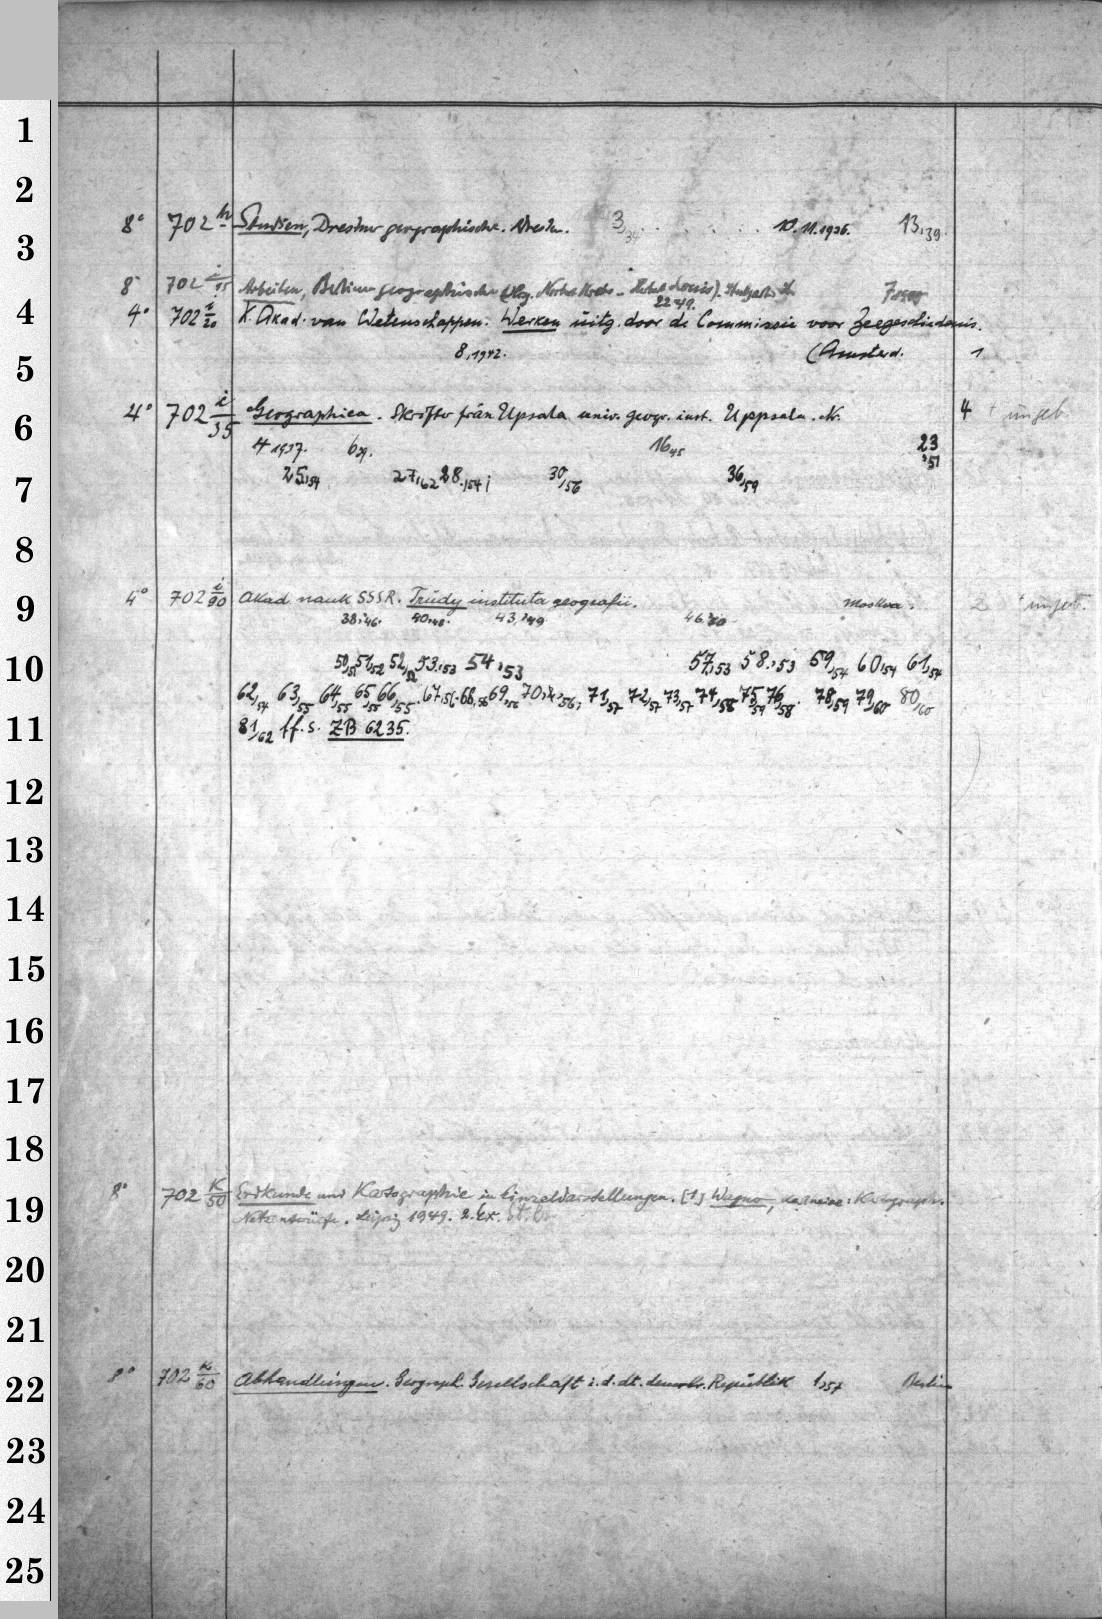 1
2
8° 702 h Studien, Dresdner geographische. Dresden. 3,34 . . . . . . 10.11.1936. 13,39
3
8° 702 i/15 Arbeiten, Berliner geographische (Hrsg. Norbert Krebs - Herbert Louis). Stuttgart
22 49.
4
4° 702 i/20 K. Akad. van Wetenschappen. Werken uitg. door de Commissie voor Zeegeschiedenis.
8,1942. (Amsterd. 1
5
4° 702 i/35 Geographica. Skrifter från Upsala univ. geogr. inst. Uppsala. N. 4 + ungeb.
6
4 1937. 6 16,45 23,51
25,54 27,62 28,154 30/56 36,59
7
8
4° 702 i/90 Akad nauk SSSR. Trudy instituta geografii. Moskva. 2 + ungeb.
9
38,46. 40,48. 43,49 46,50
10
50,51 51,52 52,52 53,53 54,53 57,53 58,53 59,54 60,54 61,54
62,54 63,55 64,55 65,55 66,55 67,56 68,56 69,56 70,56, 71,57 72,57 73,57 74,58 75,59 76,58. 78,59 79,60 80,60
11
81,62 ff. s. ZB 6235.
12
13
14
15
16
17
18
8° 702 K/50 Erdkunde und Kartographie in Einzeldarstellungen. [1] Wagner, : Kartograph.
19
Netzentwürfe. Leipzig 1949. 2. Ex.
20
21
8° 702 K/60 Abhandlungen. Geograph. Gesellschaft i. d. dt. demokr. Republik 1,57 Berlin
22
23
24
25